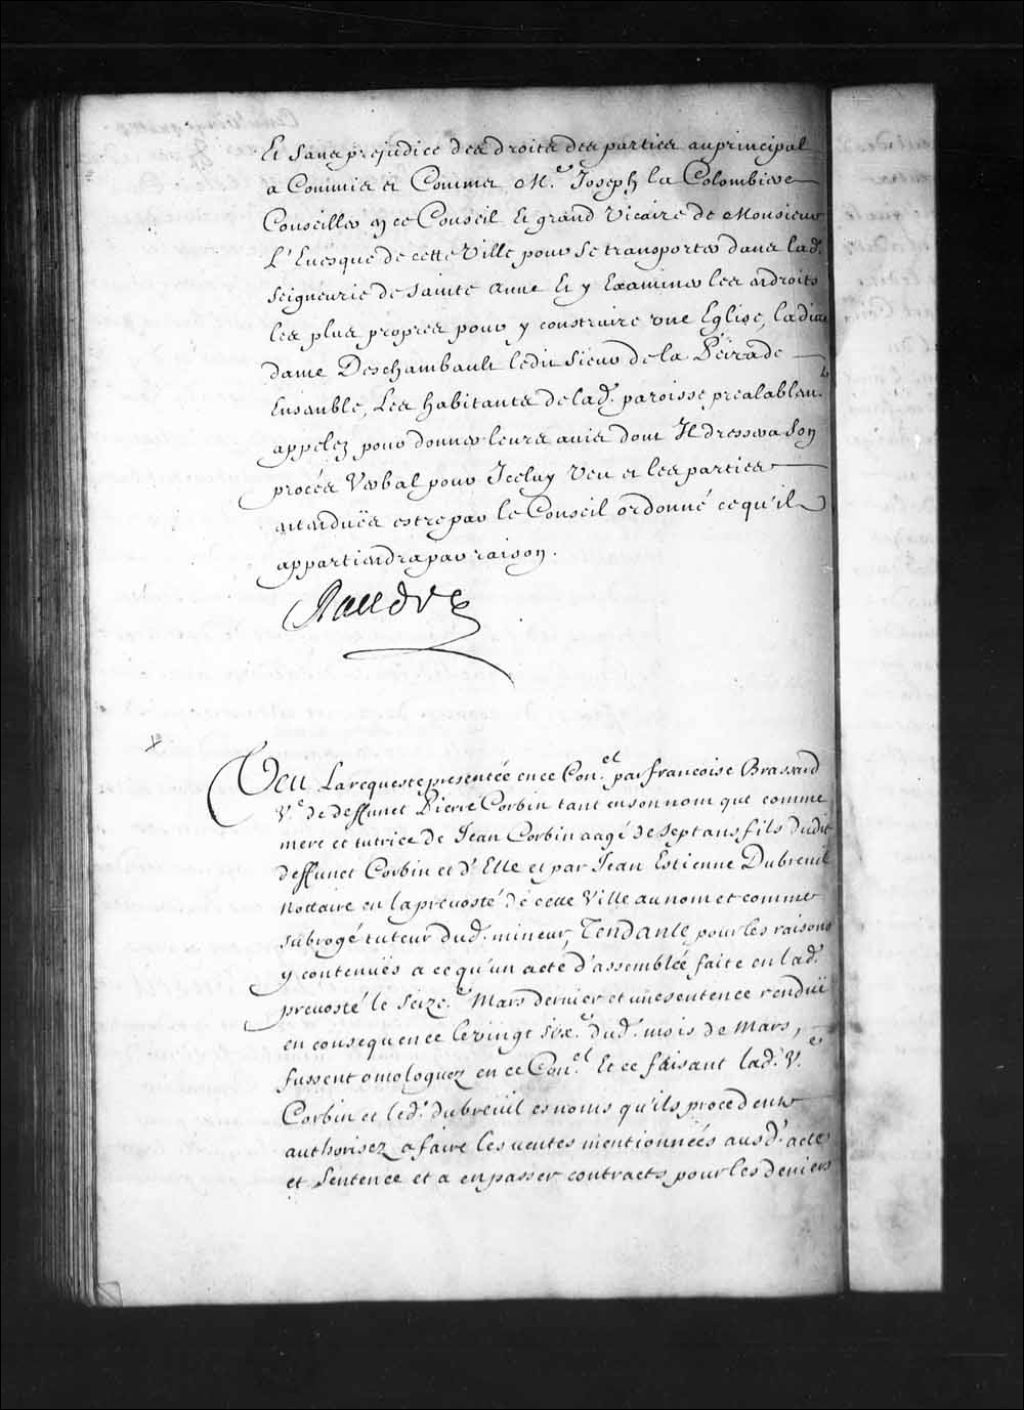 Et sans prejudice des droits des parties au principal
a Commis et Commet M.e Joseph la Colombiere
Conseiller en ce Conseil Et grand Vicaire de Monsieur
L'Euesque de cette Ville pour se transporter dans lad.
Seigneurie de Sainte Anne Et y Examiner les endroits
les plus propres pour y construire vne Eglise, ladite
dame Deschambault ledit Sieur de la Peirade
Ensemble, Les habitants de lad. paroisse, prealablem.t
appelez pour donner leurs auis dont Il dressera son
procés Verbal pour Iceluy Veu et les parties
entenduës estre par le Conseil ordonné ce qu'il
appartiendra par raison.
Veu La requeste presentée en ce Con.el par francoise Brassard
V.e de deffunct Pierre Corbin tant en son nom que comme
mere et tutrice de Jean Corbin aagé de sept ans fils dudit
deffunct Corbin et d'Elle et par Jean Estienne Dubreuil
Nottaire en la preuosté de cette Ville au nom et comme
subrogé tuteur dud. mineur, Tendante pour les raisons
y contenuës a ce qu'un acte d'assemblée faite en lad.
preuosté le seize.e Mars dernier et une sentence renduë
en consequence le vingt six.e dud. mois de Mars,
fussent omologuez en ce Con.el Et ce faisant lad. V.e
Corbin et led. dubreuil es noms qu'ils procedent
authorisez a faire les uentes mentionnées ausd. acte
et Sentence et a en passer contracts pour les deniers